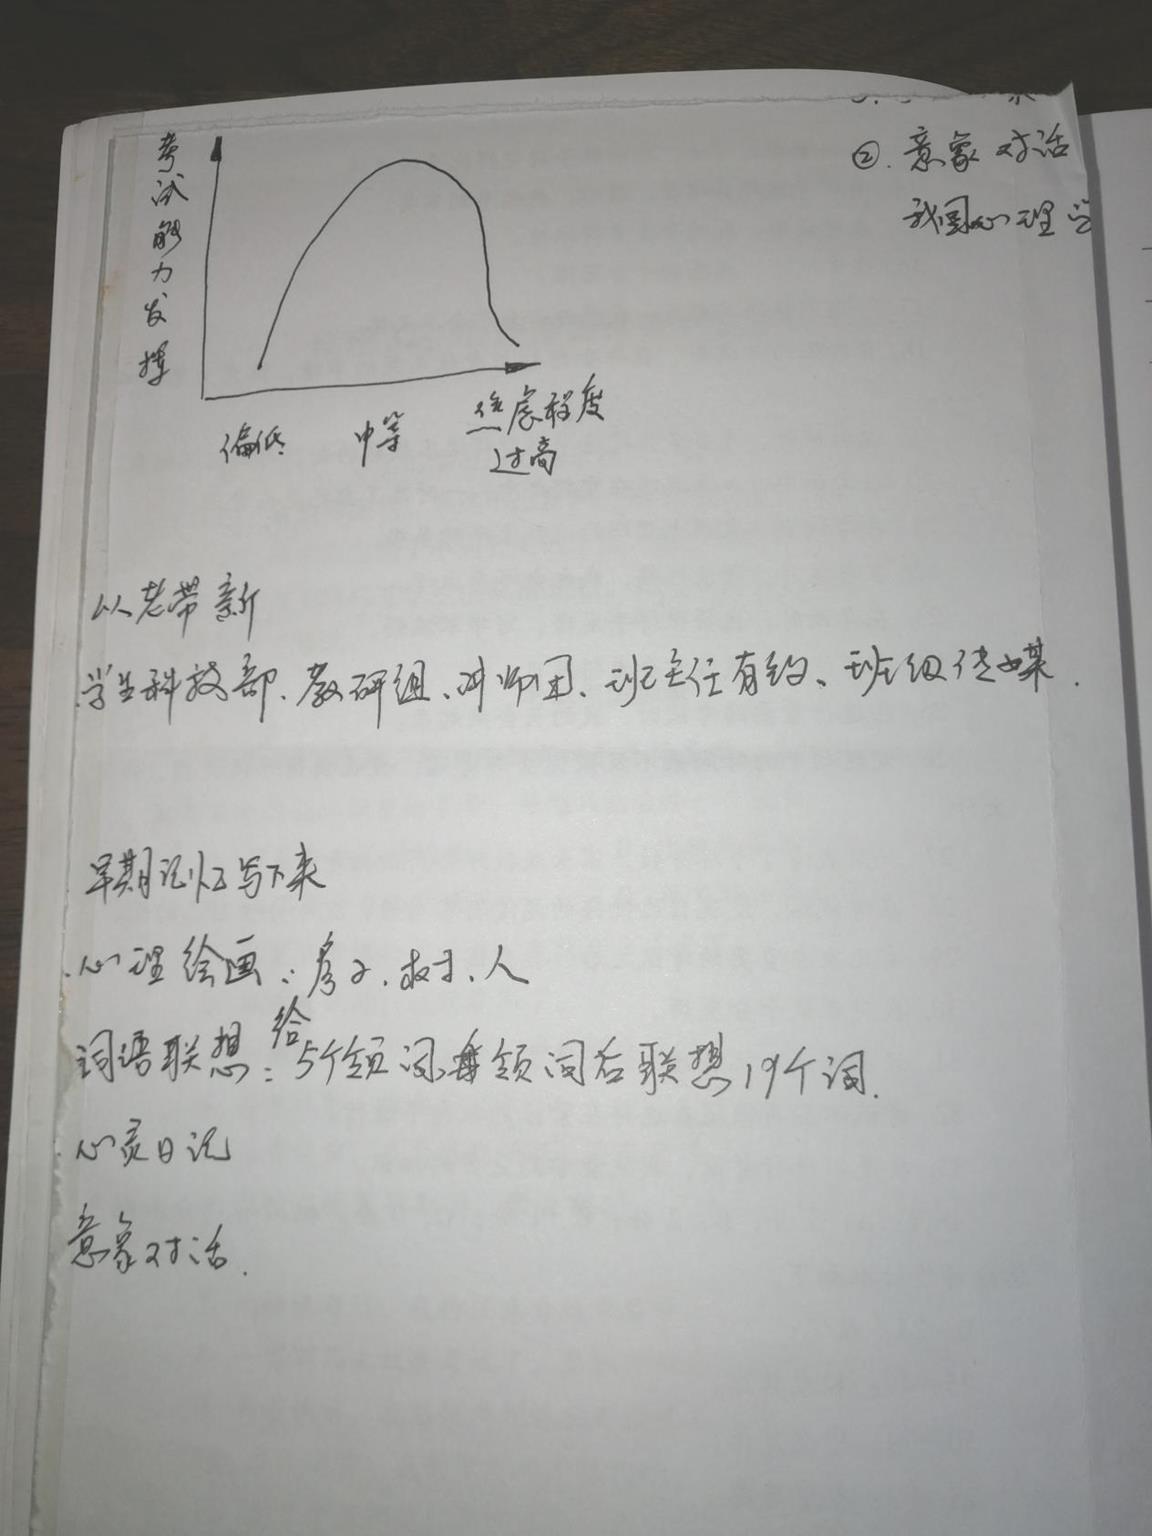 考试能力发挥
偏低 中等 焦虑程度
过高
②. 意象对话
我国心理学
以老带新
学生科技部、教研组、讲师团、班主任有约、班级传媒.
早期记忆写下来
心理绘画：房子、树、人
词语联想：给5个领词,每领词后联想19个词.
心灵日记
意象对话.